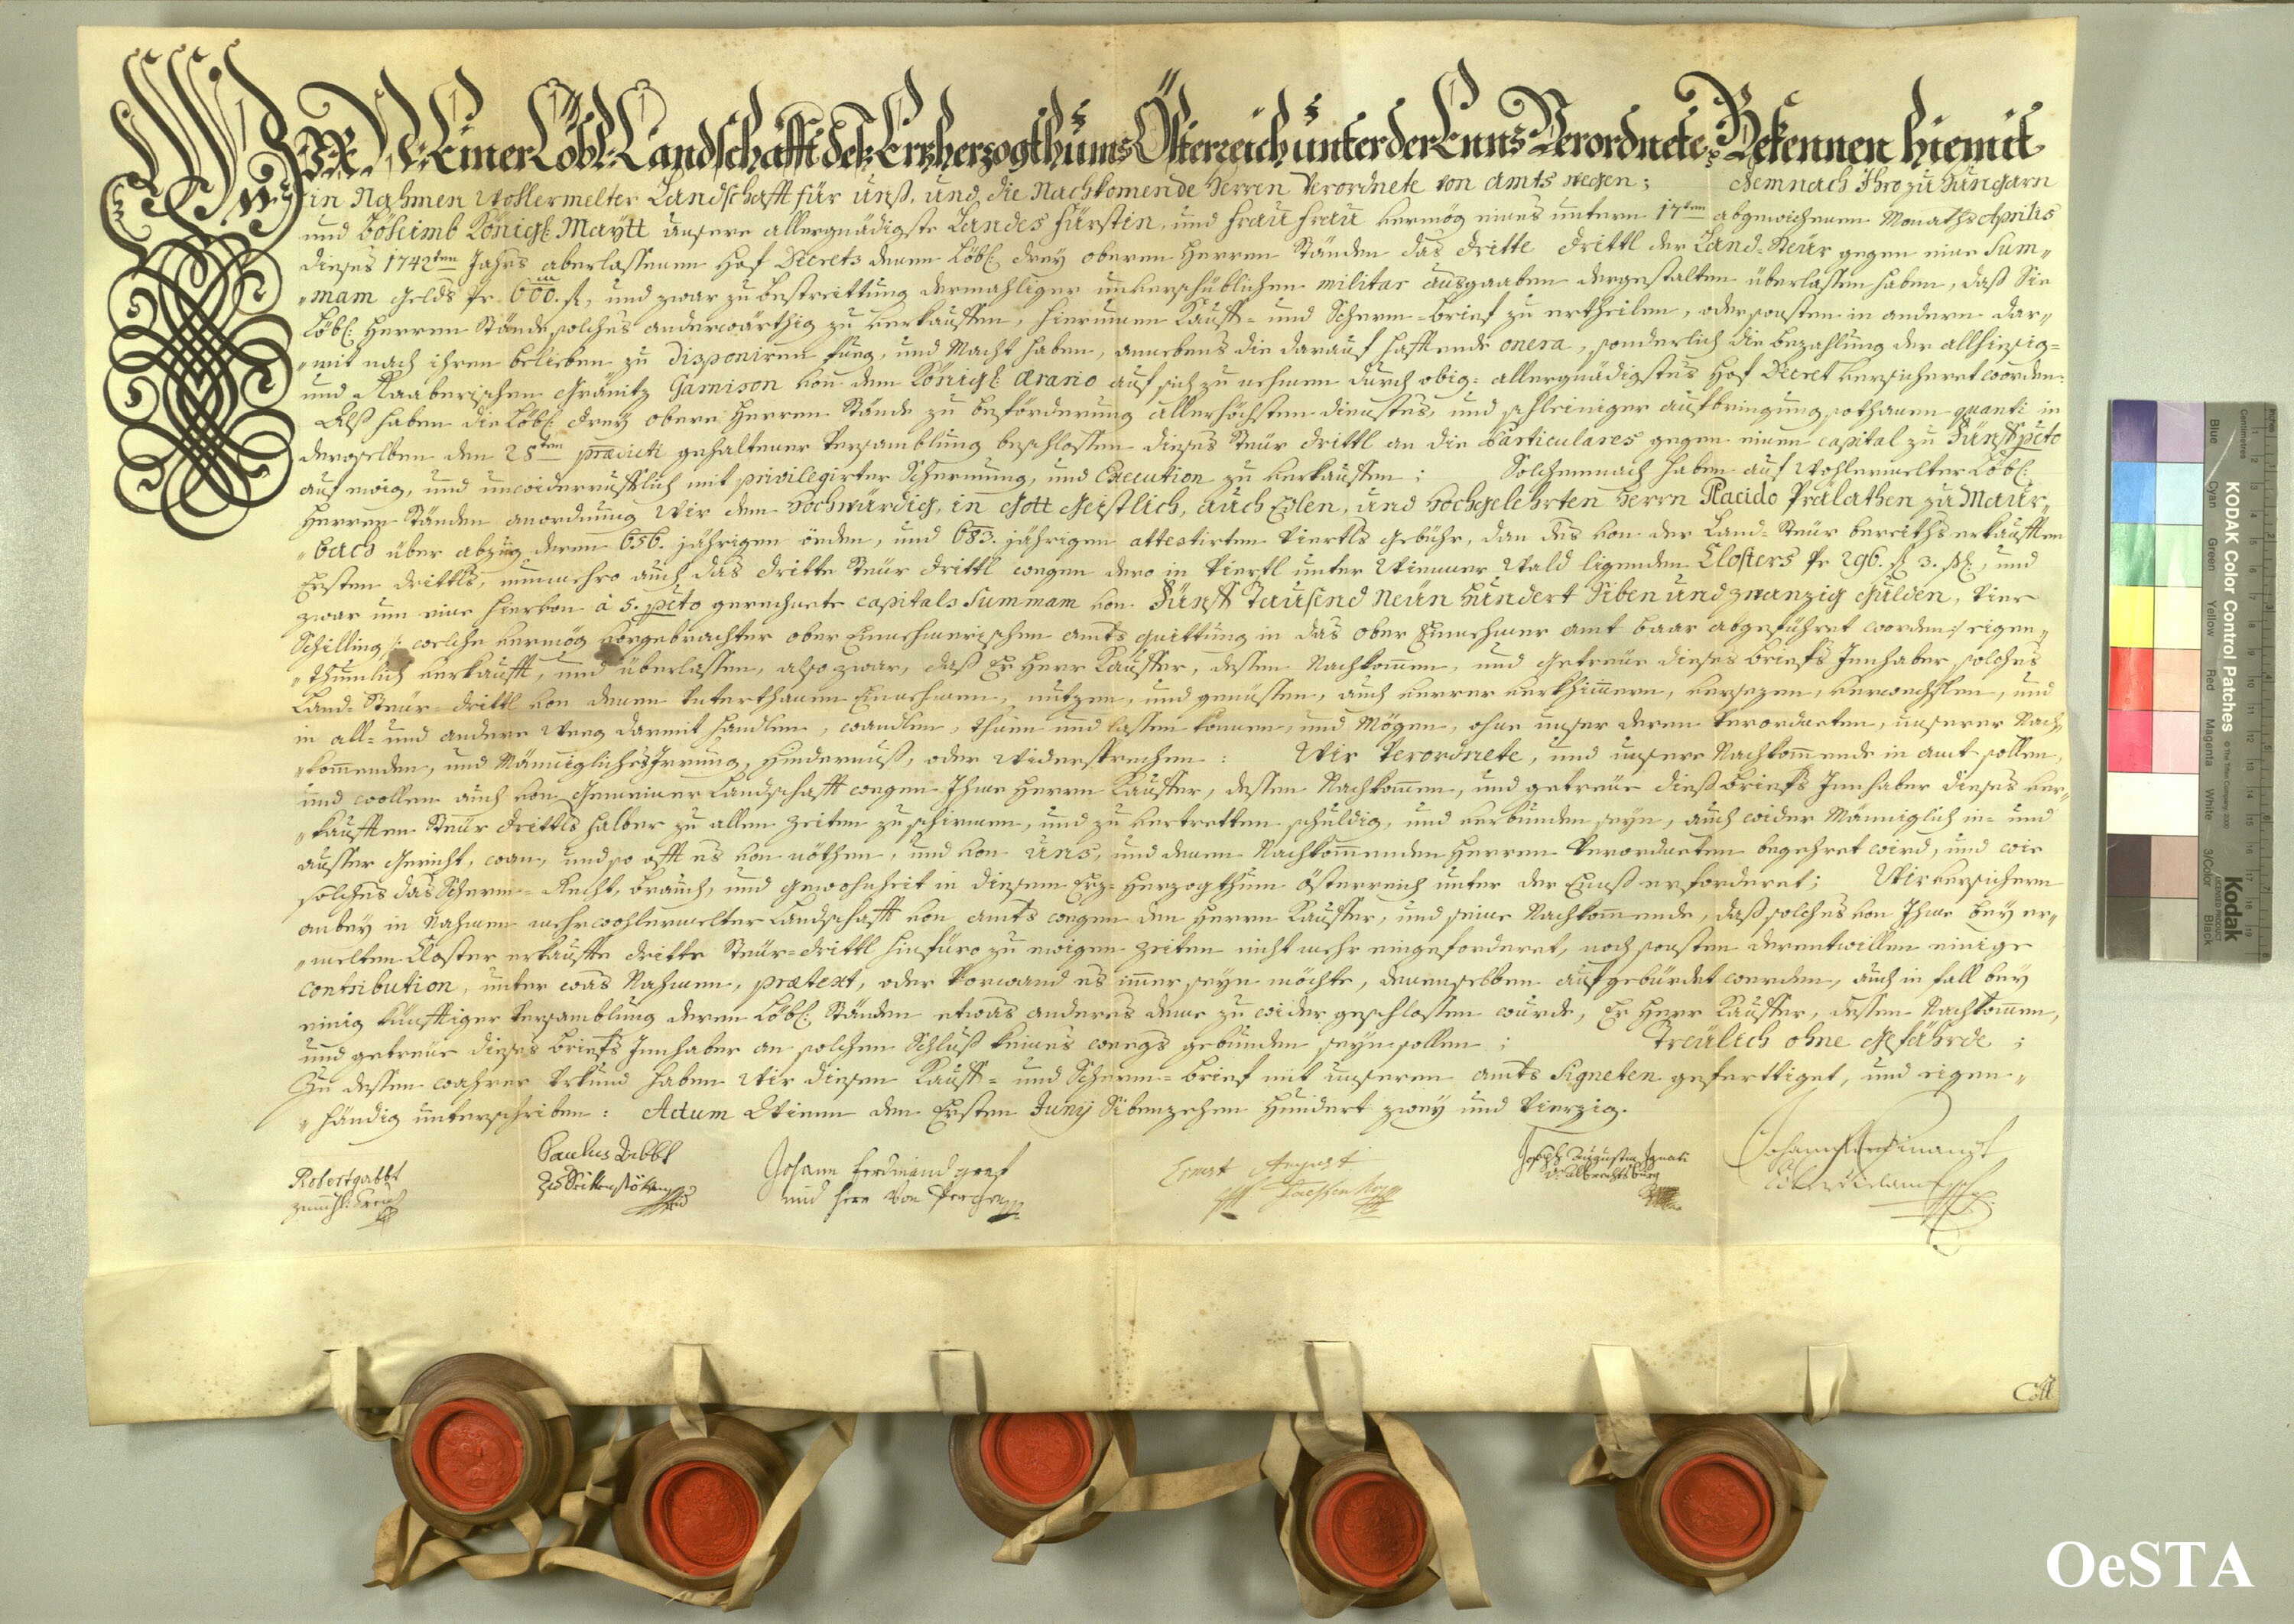 WIR N: N: Einer Löbl: Landschafft deß Erzherzogthums Österreich unter der Enns Verordnete, Bekennen hiemit
in Nahmen wollermelter Landschafft für unß, und die Nachkomende Herren Verordnete von Amts wegen; demnach Ihro zu Hungarn
und Böheimb Königl: Maytt unsere allergnädigste Landes Fürstin, und Frau Frau vermög eines unterm 17ten abgewichenen Monaths Aprilis
dieses 1742ten Jahrs aberlassenen Hof Decrets denen Löbl: drey oberen Herren Ständen das dritte drittl der Land-Steür gegen eine Sum„
„mam Gelds pr 600. fl, und zwar zu bestreittung dermahliger unverschüblichen militar ausgaaben dergestalten überlassen haben, daß Sie
Löbl: Herren Stände solches anderwärthig zu verkauffen, hierumen Kauff- und Scherm-Brief zu ertheilen, oder sonsten in andern dar„
„mit nach ihren belieben zu disponiren fueg, und Macht haben, annebens die darauf hafftende onera, sonderlich die bezahlung der allhiesig-
und Raaberischen Gränitz Garnison von dem Königl: Ærario auf sich zu nehmen durch obig-allergnädigstes Hof Decret versicheret worden:
Alß haben die Löbl: drey obere Herren Stände zu beförderung allerhöchsten diensts, und schleiniger aufbringung sothanen quanti in
deroselben den 28ten prædicti gehaltener Versamblung beschlossen dieses Steür drittl an die Particulares gegen einen capital zu Fünff pcto
auf ewig, und unwiderrufflich mit privilegirter Schermung, und Execution zu verkauffen; Solchemnach haben auf wohlermelter Löbl:
Herren Ständen anordnung Wir dem Hochwürdig, in Gott Geistlich, auch Edlen, und Hochgelehrten Herrn Placido Prälathen zu Maur„
„bach über abzug deren 656. jährigen örden, und 683. jährigen attestirten Viertls gebühr, dan des von der Land-Steür bereiths erkaufften
Ersten drittls, nunmehro auch das dritte Steür drittl wegen dero in Viertl unter Wienner Wald ligenden Closters pr 296. fl 3. ßl:, und
zwar um eine hiervon à 5. pcto gerechnete capitals Summam von Fünff Tausend Neün Hundert Siben und zwanzig Gulden, Vier
Schilling /: welche vermög vorgebrachter ober Einnehmerischen amts quittung in das ober Einnehmer amt baar abgeführet worden :/ eigen„
„thumlich verkaufft, und überlassen, also zwar, daß Er Herr Käuffer, dessen Nachkommen, und Getreüe dieses briefs Innhaber solches
Land-Steür-drittl von denen Unterthanen Einnehmen, nutzen, und genüssen, auch verrer verkhümern, versezen, verwechslen, und
in all- und andere Weeg darmit handlen, wandlen, thuen und lassen können, und Mögen, ohne unser deren Verordneten, unserer Nach„
„kommenden, und Männiglichs Irrung, hindernuß, oder Widersprechen: Wir Verordnete, und unsere Nachkommende in amt sollen,
und wollen auch von Gemeiner Landschafft wegen Ihme Herrn Käuffer, dessen Nachkommen, und getreüe diß briefs Innhaber dieses ver„
„kaufften Steür drittls halber zu allen zeiten zu schirmen, und zu vertretten schuldig, und verbunden seyn, auch wider Männiglich in- und
ausser Gericht, wan, und so offt es von nöthen, und von Uns, und denen Nachkommenden Herren Verordneten begehret wird, und wie
solches das Scherm-Recht, brauch, und gewohnheit in diesem Erz-Herzogthum Österreich unter der Ennß erforderet; Wir versichern
anbey in Nahmen mehrwohlermelter Landschafft von amts wegen den Herrn Käuffer, und seine Nachkommende, daß solches von Ihme bey er„
„melten Closter erkauffte dritte Steür-drittl hinfüro zu ewigen zeiten nicht mehr eingeforderet, noch sonsten derentwillen einige
contribution, unter was Nahmen, prætext, oder Vorwand es immer seyn möchte, demenselben aufgebürdet werden, auch in fall bey
einig künfftiger Versamblung deren Löbl: Ständen etwas anderes deme zu wider geschlossen wurde, Er Herr Käuffer, dessen Nachkommen,
und getreüe dieses briefs Innhaber an solchen Schluß keines weegs gebunden seyn sollen; Treülich ohne Gefährde;
Zu dessen wahrer Urkund haben Wir diesen Kauff- und Scherm-brief mit unseren amts Signeten geferttiget, und eigen„
„händig unterschriben: Actum Wienn den Ersten Junij Sibenzehen Hundert zwey und Vierzig.
Robert abbt
Paulus Abbt
zu Seittenstötten
Johann Ferdinand graf
und herr Von
Ernst August
Joseph Augustin
v: Albrechtsburg
Johann Ferdinandt
Coll
KODAK Color Control Patches
Blue Cyan Green Yellow Red Magenta White 3/Color Black
Centimetres
Kodak
LICENSED PRODUCT
OeSTA